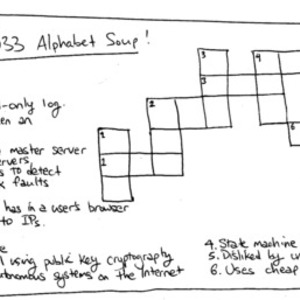 033 Alphabet Soup!
-only log.
en an
master server
ervers
s to detect
x faults
has in a user's browser
to IPs.
using public key cryptography
tonomous systems on the Internet
4. State machine
5. Disliked by
6. Uses cheap
3
4
3
2
6
1
1